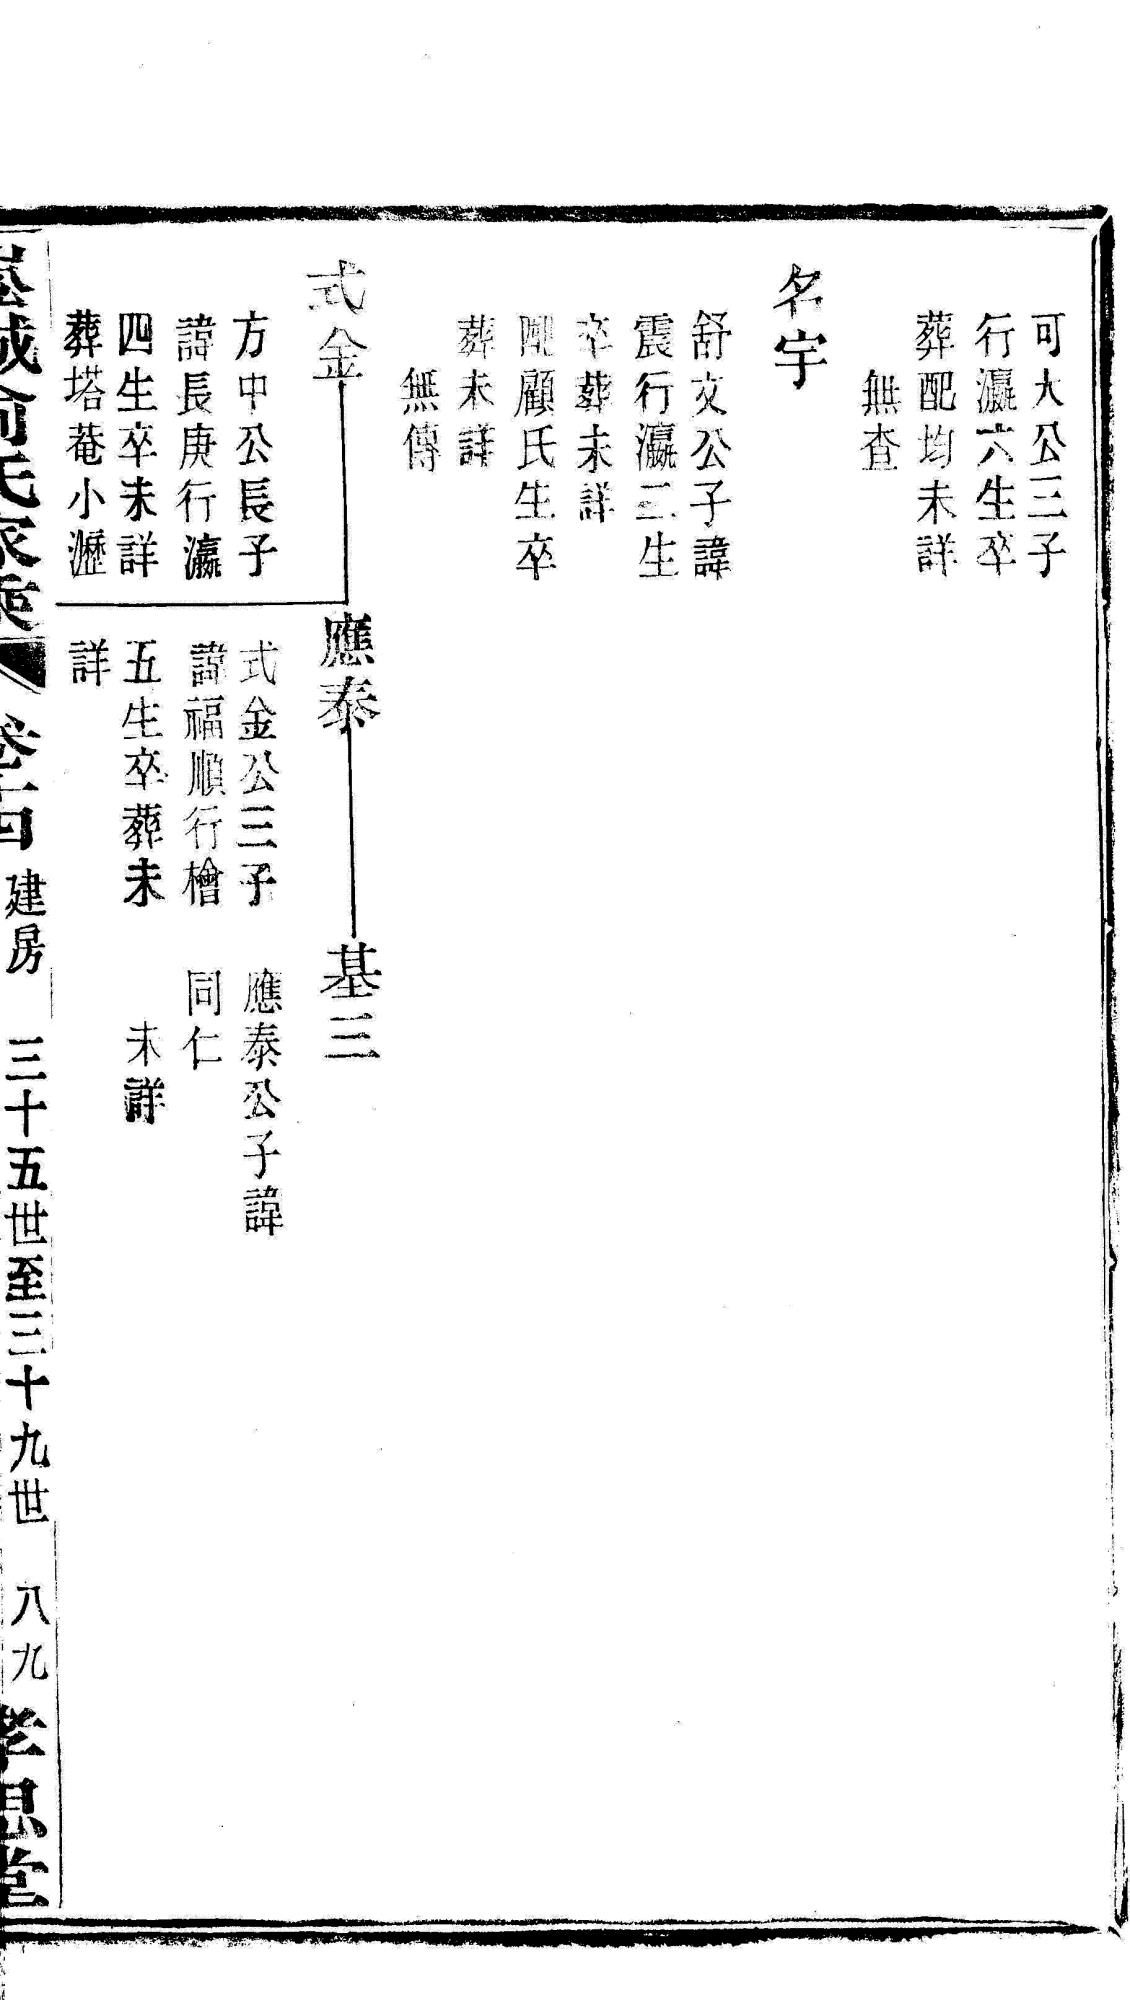 可大公三子
行瀛六生卒
葬配均未詳
無查
名宇
舒文公子諱
震行瀛二生
卒葬未詳
配顧氏生卒
葬未詳
無傳
式金
方中公長子
諱長庚行瀛
四生卒未詳
葬塔菴小瀝
應泰
式金公三子
諱福順行檜
五生卒葬未
詳
基三
應泰公子諱
同仁
未詳
城俞氏家乘 卷十四 建房 三十五世至三十九世 八九 孝思堂